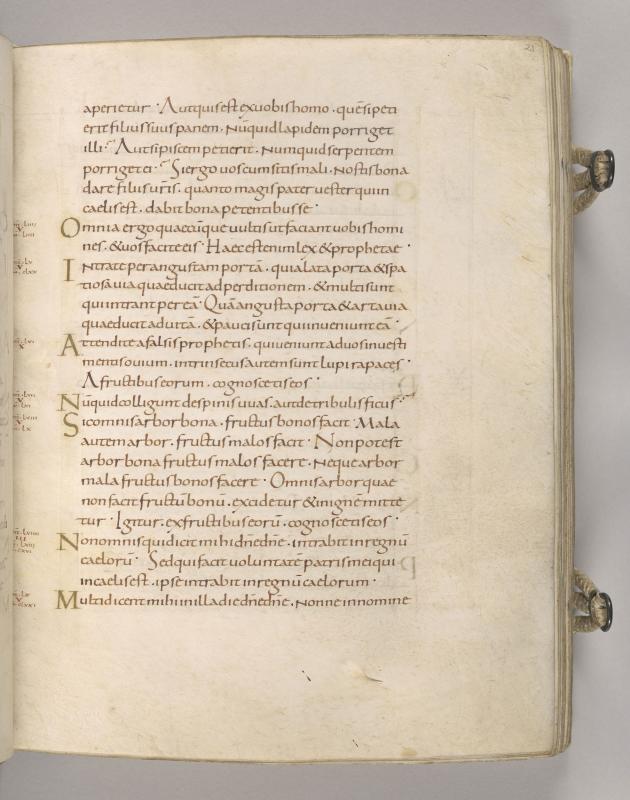 21
aperietur · Aut quis est ex uobis homo . quē si peti
erit filius suus panem . Nūquid lapidem porriget
illi · Aut si piscem petierit . Numquid serpentem
porriget ei · Si ergo uos cum sitis mali . Nostis bona
dare filiis urīs . quanto magis pater uester qui in
caelis est . dabit bona petentibus se ·
Omnia ergo quaecūque uultis ut faciant uobis homi
nes . & uos facite eis · Haec est enim lex & prophetae ·
Intrate per angustam portā . quia lata porta & spa
tiosa uia quae ducit ad perditionem . & multi sunt
qui intrant per eā · Quā angusta porta & arta uia
quae ducit ad uitā . & pauci sunt qui inueniunt eā ·
Attendite a falsis prophetis . qui ueniunt ad uos in uesti
mentis ouium . intrinsecus autem sunt lupi rapaces ·
A fructibus eorum . cognoscetis eos ·
Nūquid colligunt de spinis uuas . aut de tribulis ficus ·
Sic omnis arbor bona . fructus bonos facit · Mala
autem arbor . fructus malos facit · Non potest
arbor bona fructus malos facere . Neque arbor
mala fructus bonos facere · Omnis arbor quae
non facit fructū bonū . excidetur & in ignē mitte
tur · Igitur . ex fructibus eorū . cognoscetis eos ·
Non omnis qui dicit mihi dn̄e dn̄e . intrabit in regnū
caelorū · Sed qui facit uoluntatē patris mei qui
in caelis est . ipse intrabit in regnū caelorum ·
Multi dicent mihi in illa die dn̄e dn̄e . Nonne in nomine